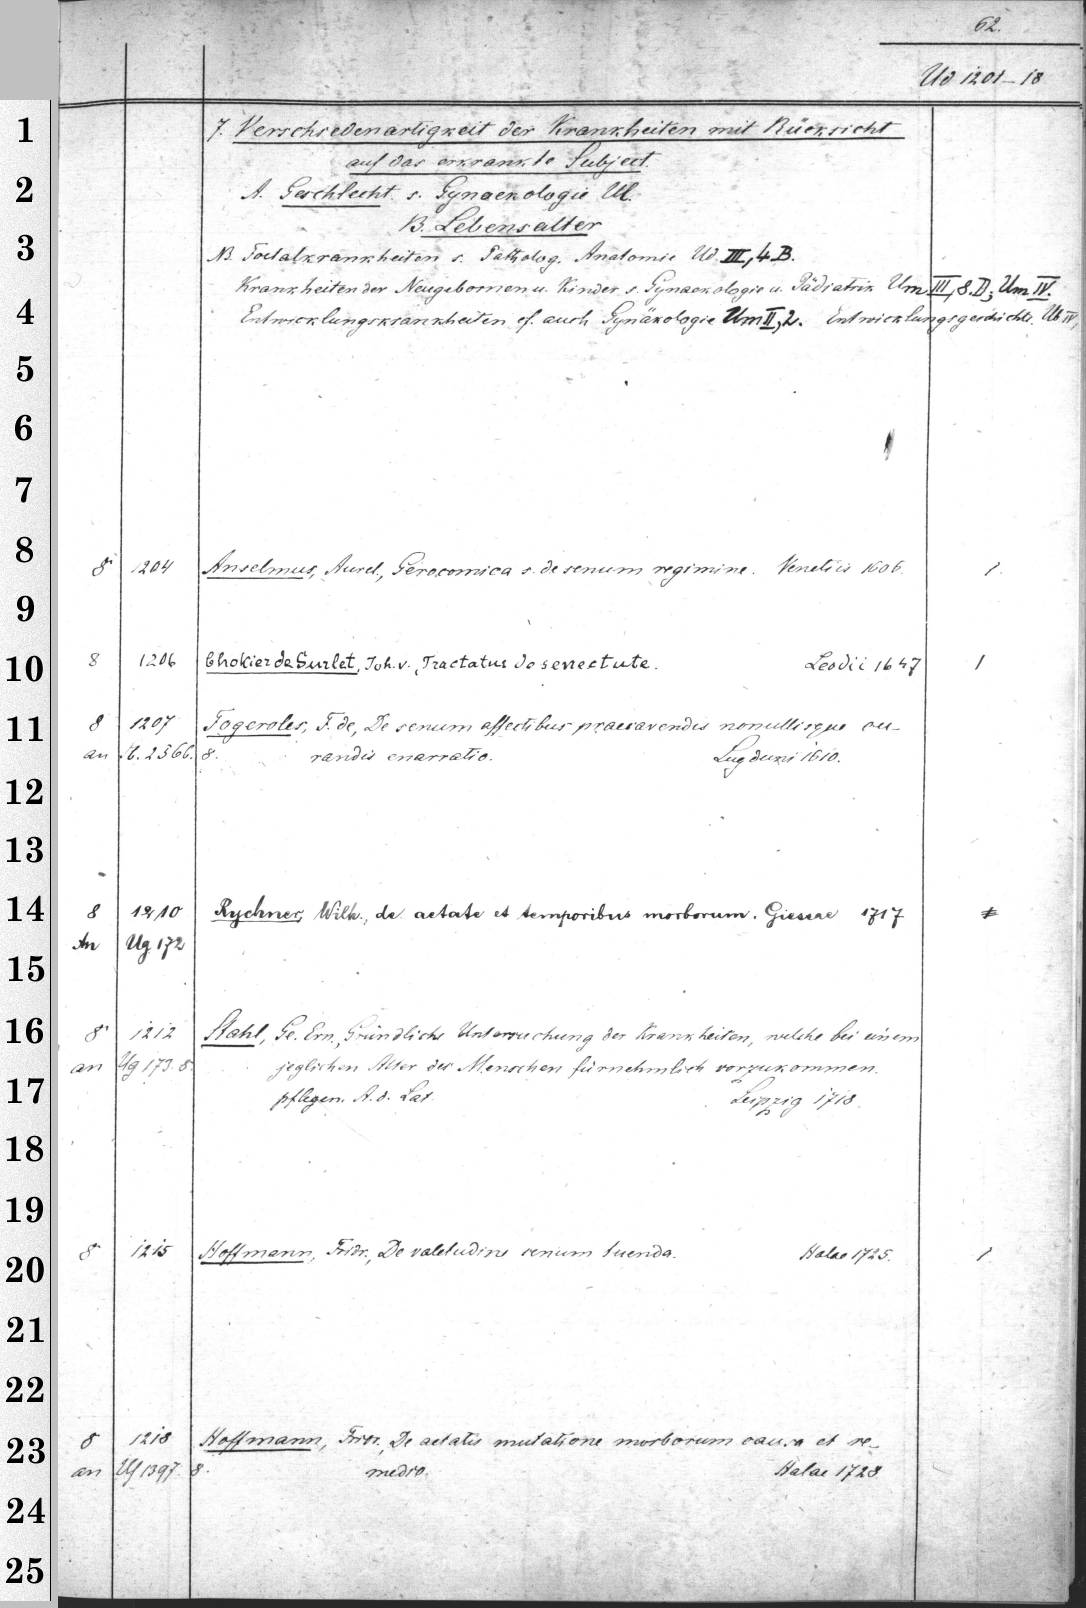 62.
Ud 1201-18
7. Verschiedenartigkeit der Krankheiten mit Rücksicht
auf das erkrankte Subject.
A. Geschlecht s. Gynaekologie Ul.
B. Lebensalter
NB. Foetalkrankheiten s. Patholog. Anatomie Ud III, 4 B.
Krankheiten der Neugebornen u. Kinder s. Gynaekologie u. Pädiatrik Um III, 8. D; Um IV.
Entwicklungskrankheiten cf. auch Gynäkologie Um II, 2. Entwicklungsgeschichte Ub IV,
1
2
3
4
5
6
7
8
8 1204 Anselmus, Aurel., Gerocomica s. de senum regimine. Venetiis 1606. 1.
9
10
8 1206 Chokier de Surlet, Joh. v., Tractatus de senectute. Leodii 1647 1
11
8 1207 Fogeroles, F. de, De senum affectibus praecavendis nonullisque cu-
an 2366. 8. randis enarratio. Lugduni 1610.
12
13
14
8 1210 Rychner, Wilh., de aetate et temporibus morborum. Giessae 1717
An Ug 172
15
16
8 1212 Stahl, Ge. Ern., Gründliche Untersuchung der Krankheiten, welche bei einem
an Ug 173. 8. jeglichen Alter des Menschen fürnehmlich vorzukommen
17
pflegen. A. d. Lat. Leipzig 1718.
18
19
20
8 1215 Hoffmann, Fridr., De valetudine senum tuenda. Halae 1725. 1
21
22
23
8 1218 Hoffmann, Fridr., De aetatis mutatione morborum causa et re-
an Uf 1397. 8. medio. Halae 1728
24
25